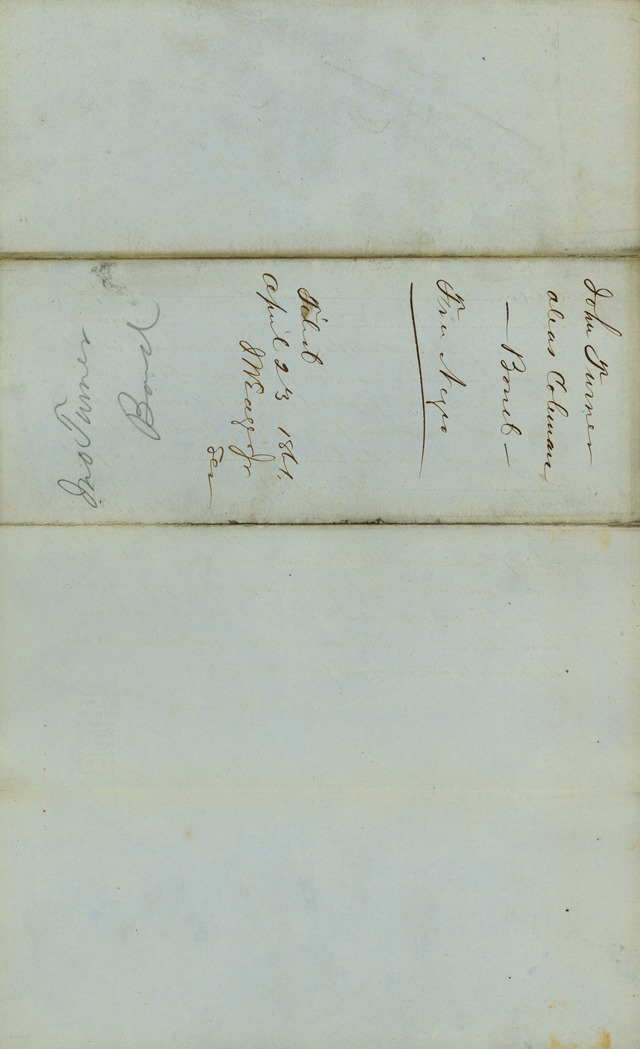 John Turner
alias Coleman
— Bond —
Free Negro
Filed
April 23 1861.
Jr
Jno Turner
Bond